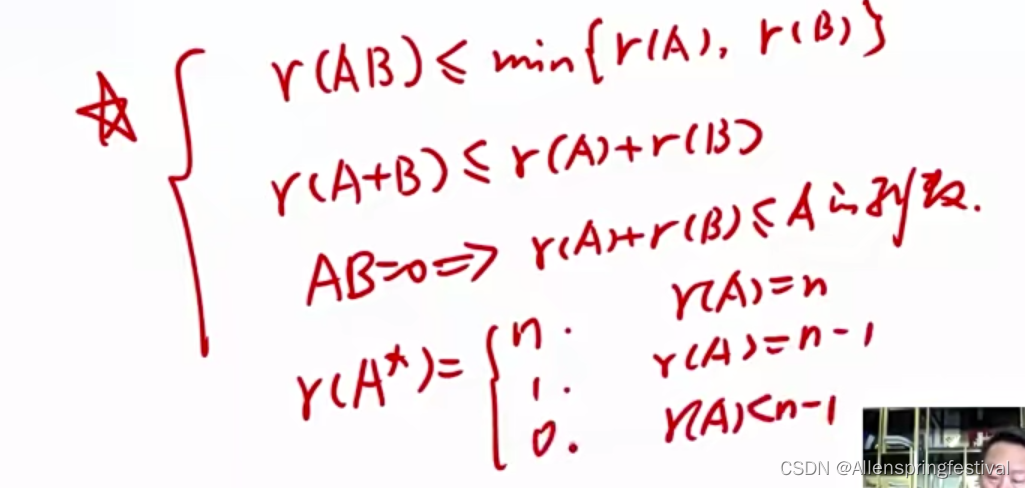 ☆ r(AB)≤min{r(A), r(B)}
r(A+B)≤r(A)+r(B)
AB=0⇒r(A)+r(B)≤A的列数.
r(A*)={n. r(A)=n
1. r(A)=n-1
0. r(A)<n-1
CSDN @Allenspringfestival